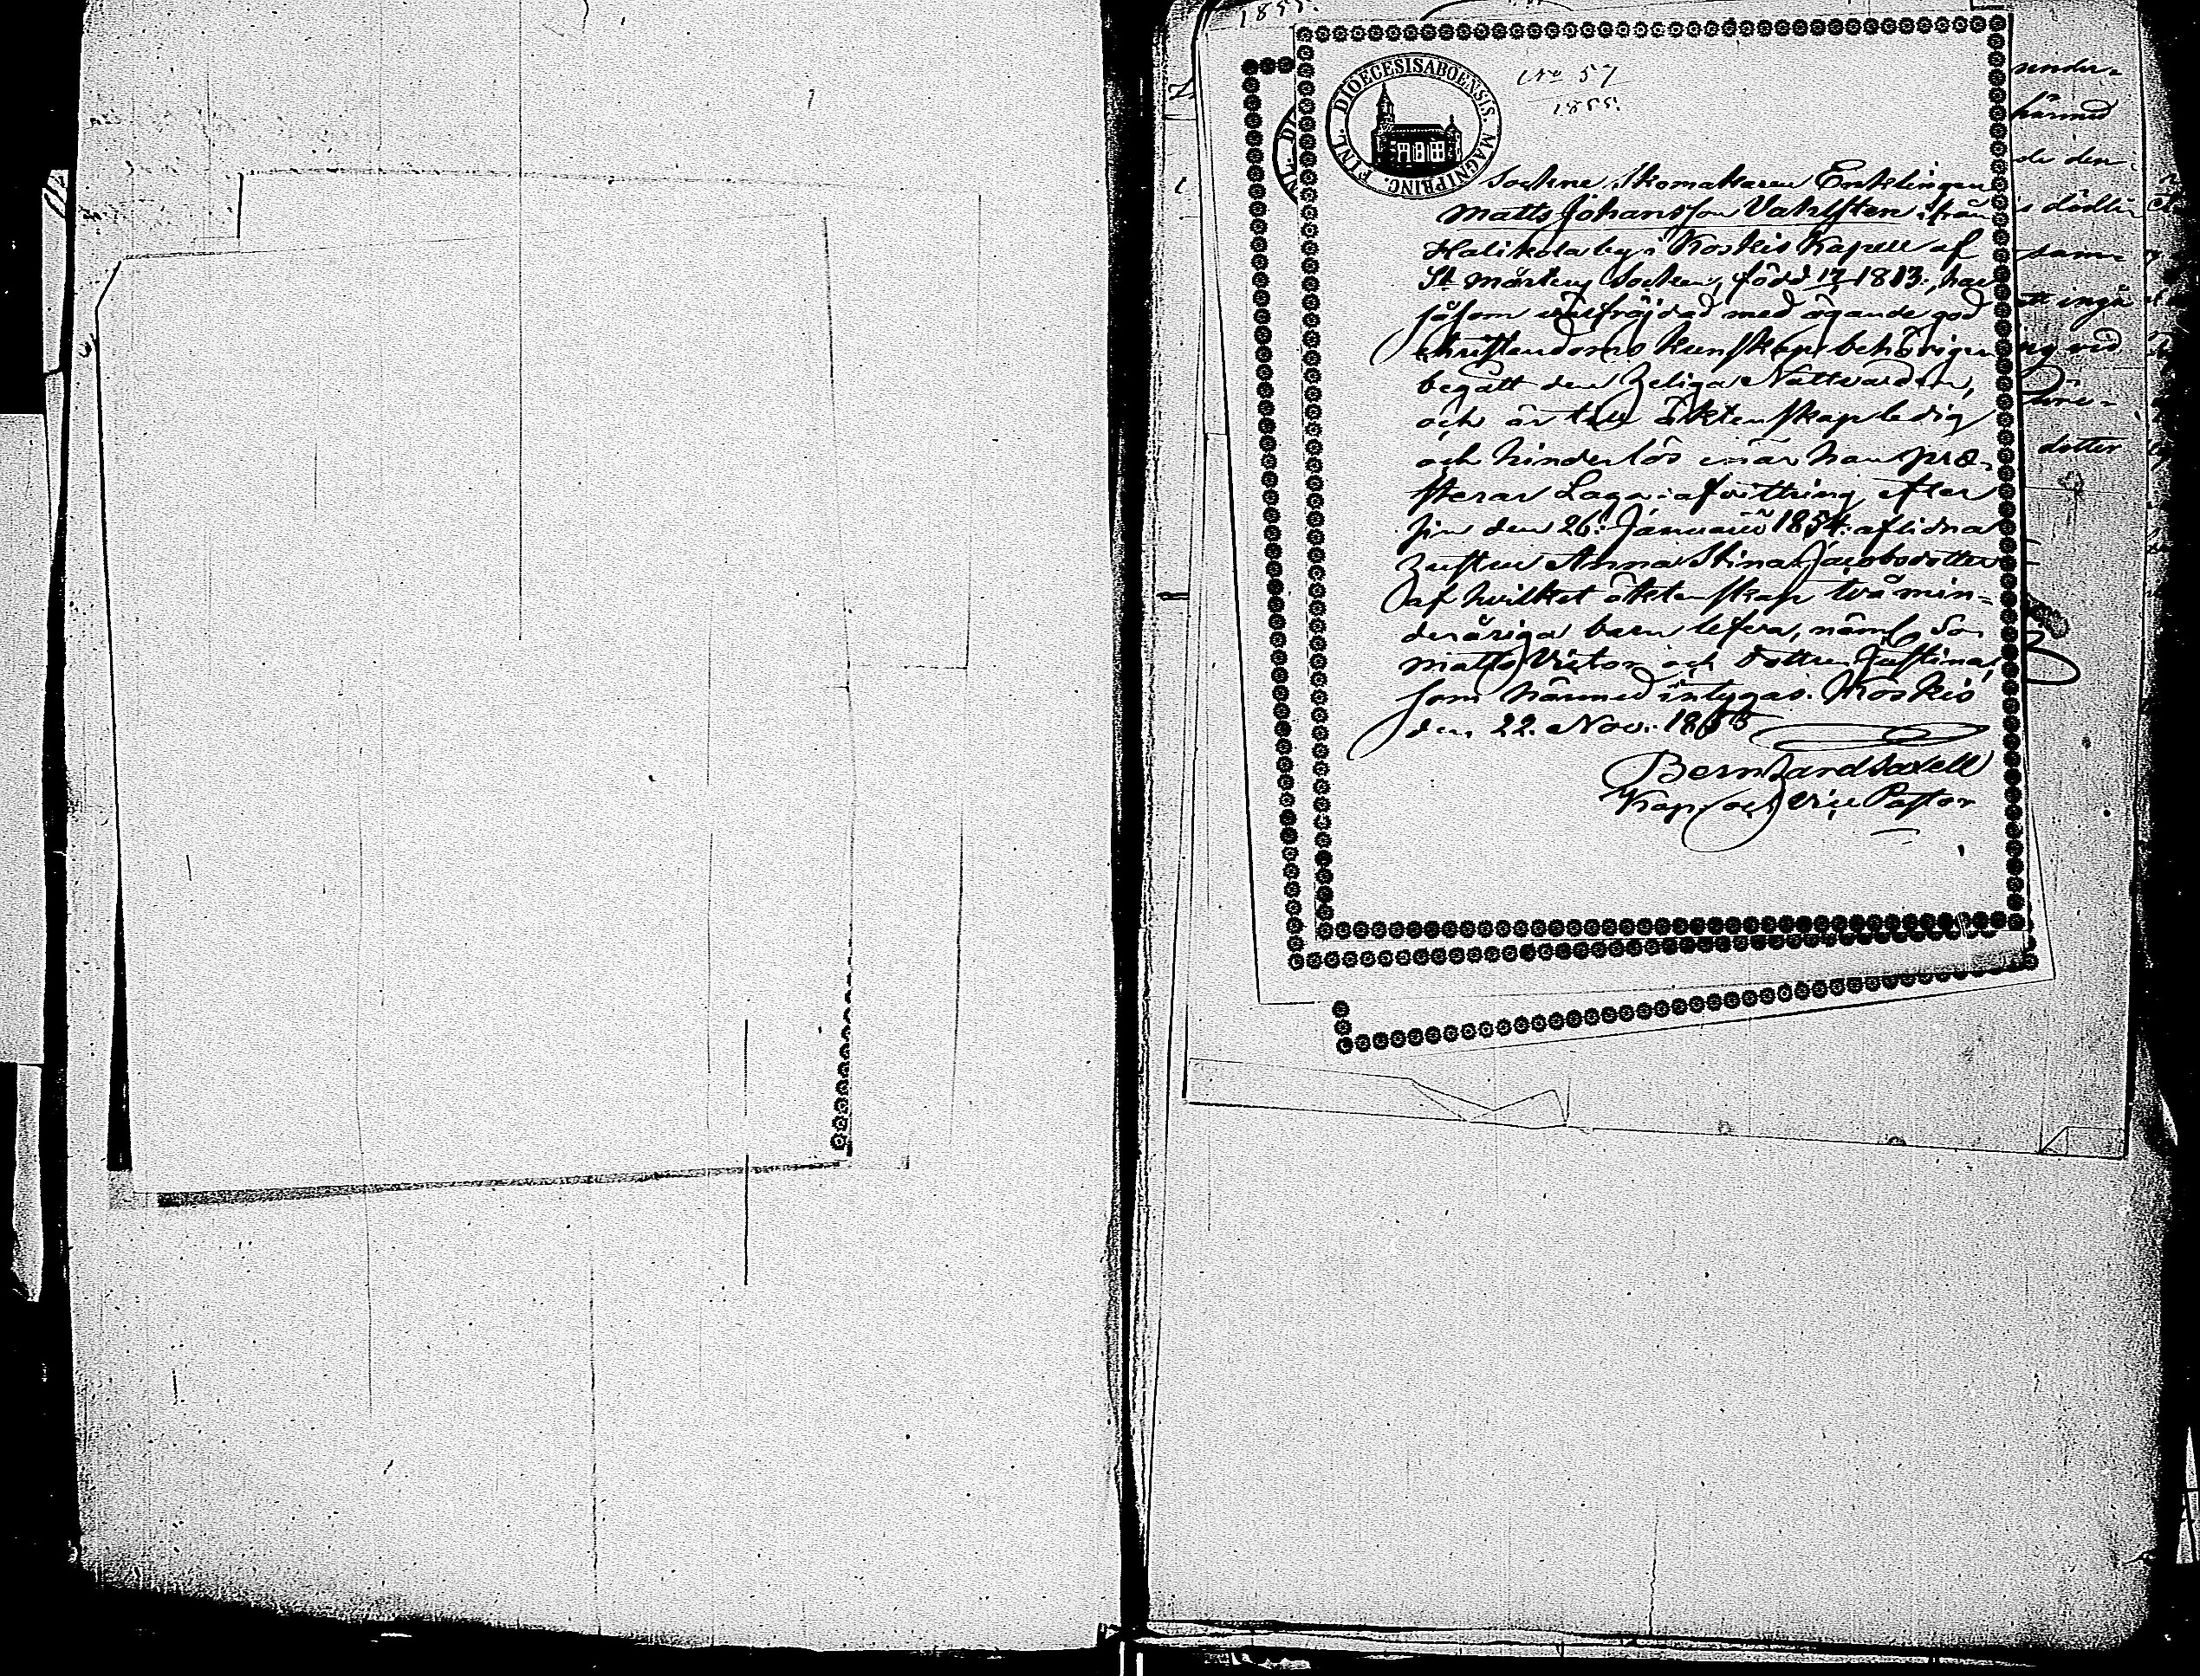 1855.
DIOECESIS ABOENSIS. MAGNI PRINC. FINL.
No 57
1855.
Sockne Skomakaren Enklingen
Matts Johansson Vahlsten ifrån
Halikola by i Koskis Kapell af
St Mårtens Socken, född 1813, har
såsom välfräjdad med ägande god
christendoms kunskap behörigen
begått den Heliga Nattvarden,
och är till äktenskap ledig
och hinderlös när han præ-
sterar Laga afvittring efter
sin den 26. Januarii 1854 aflidna
Hustru Anna Stina Jacobsdotter
af hvilket äktenskap två min-
deråriga barn lefva, näml. Son
Matts Victor och dottren Justina,
som härmed intygas. Koskis
den 22. Nov. 1855
Bernhard Saxell
Kap. och Vice Pastor
under-
härmed
den
sam-
att ingå
vid
dotter